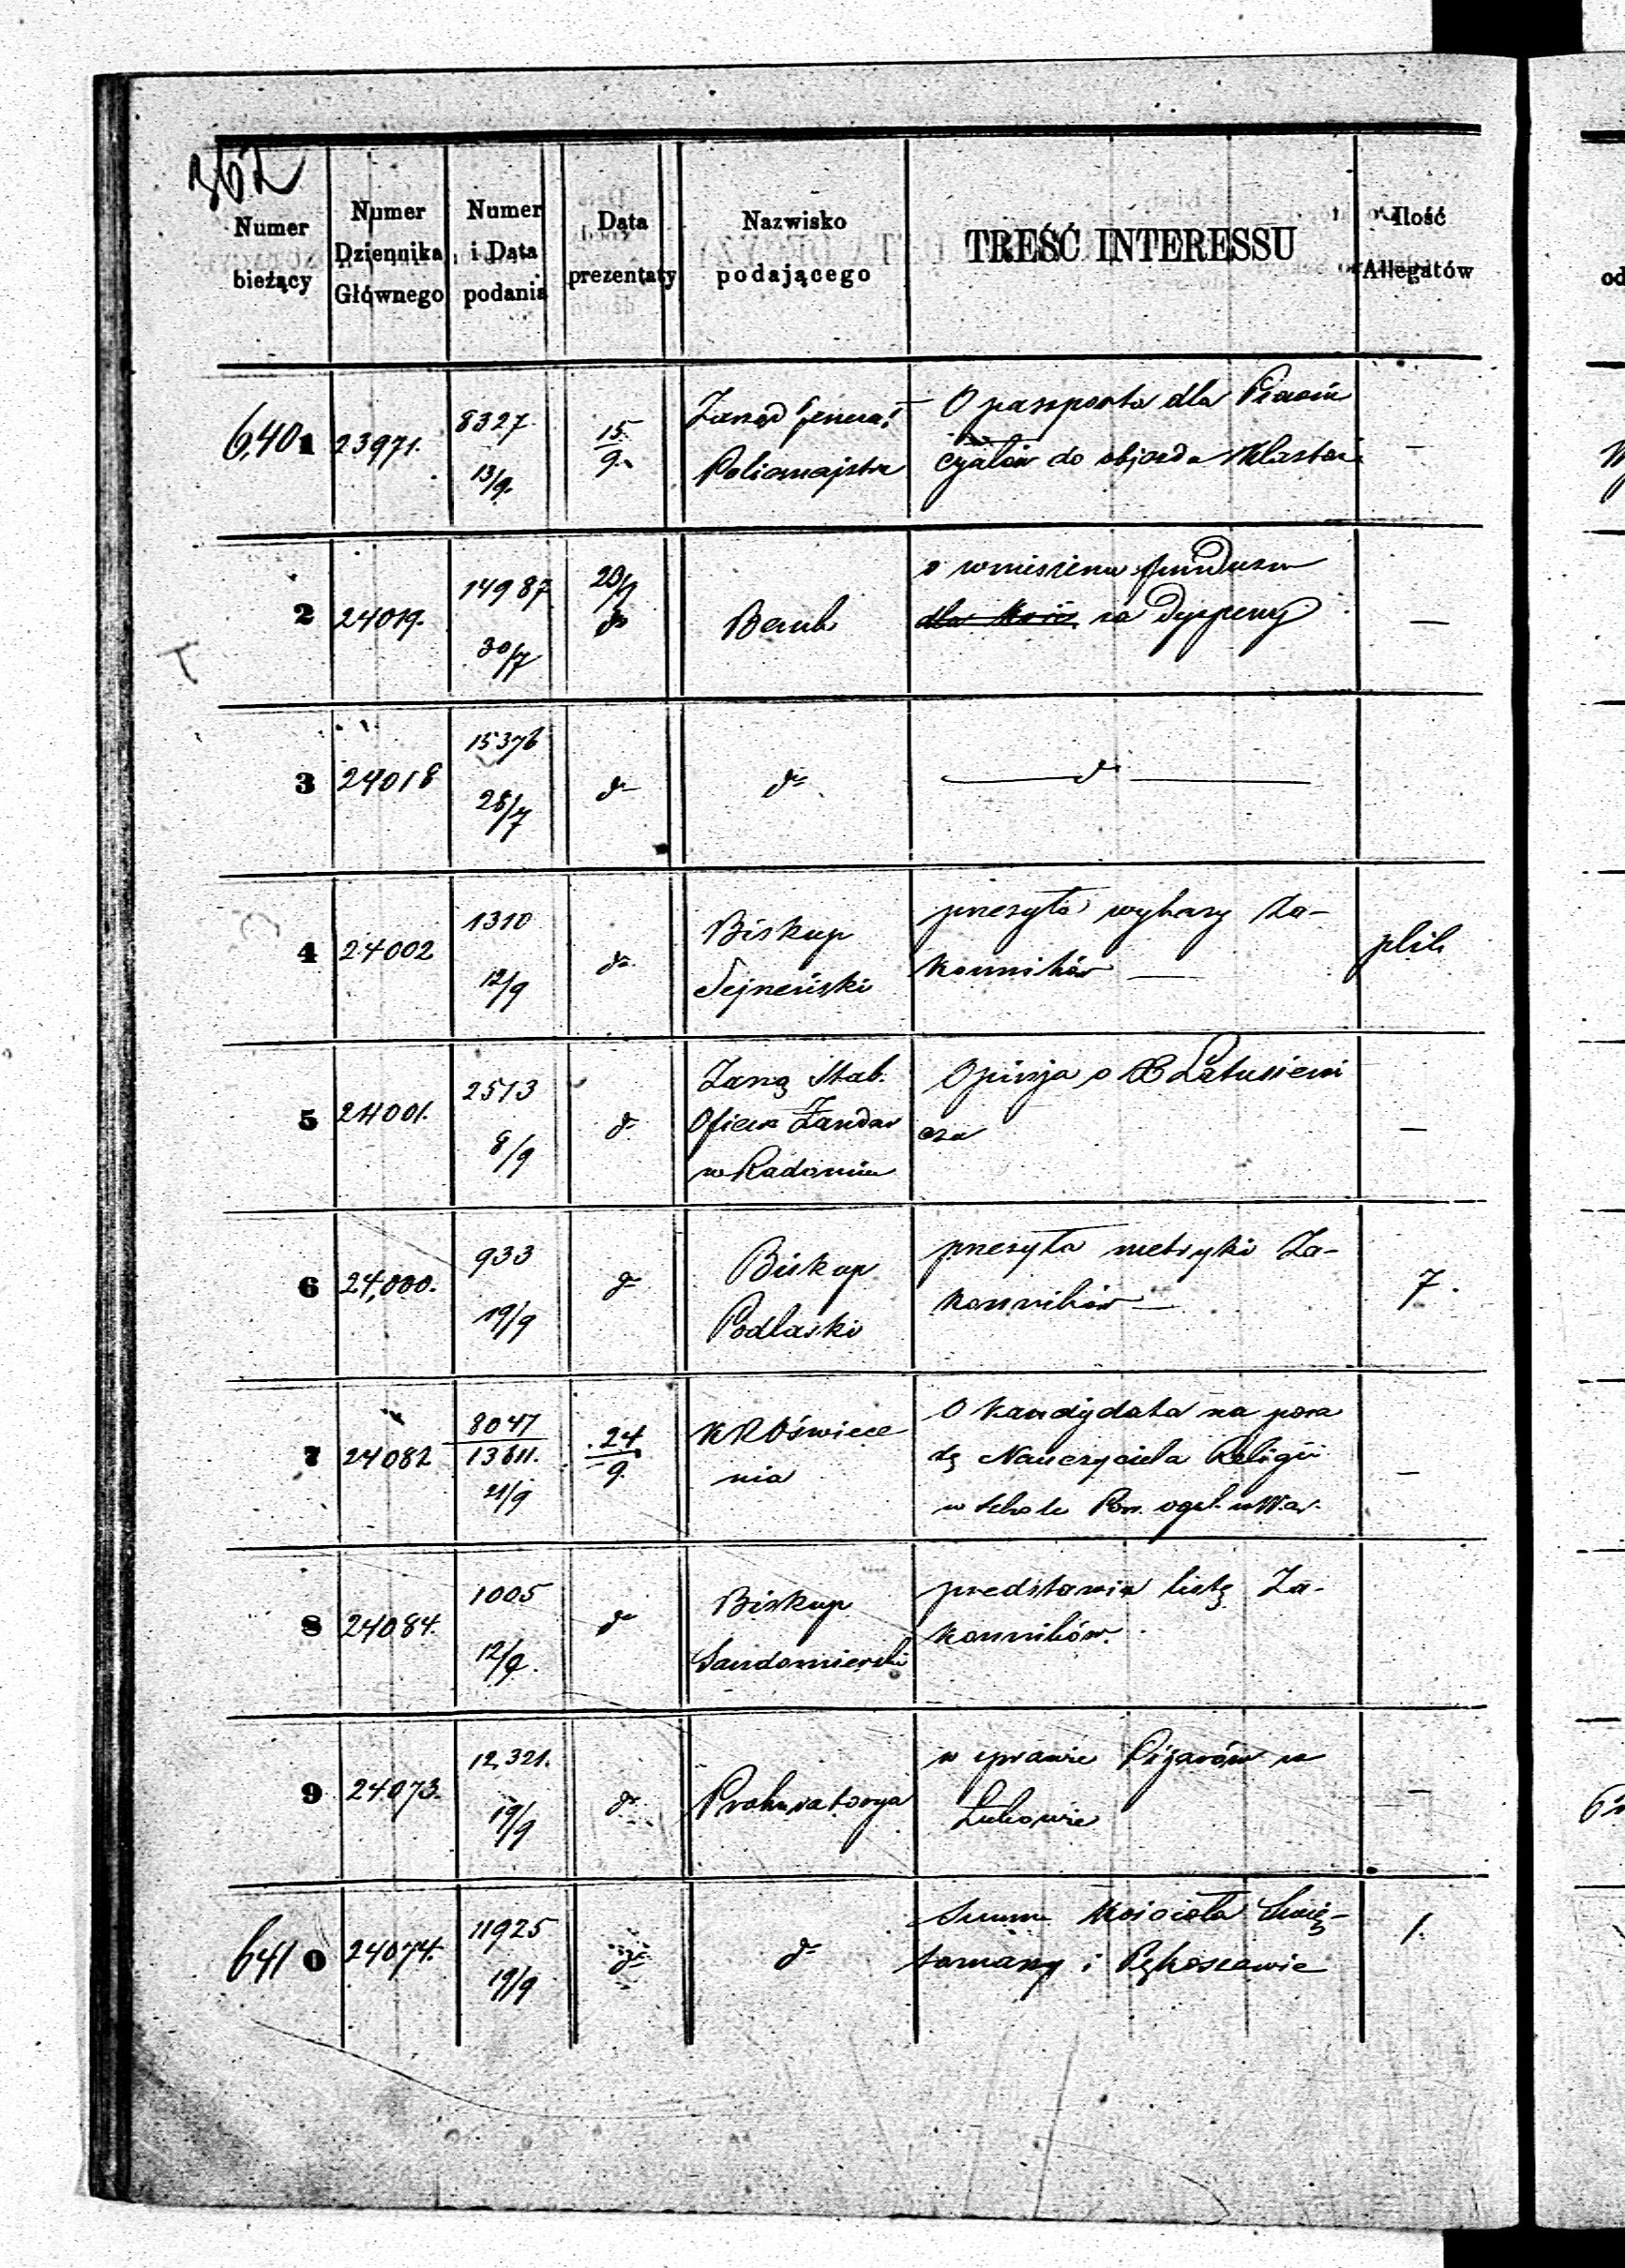 362
Numer bieżący
Numer Dziennika Głównego
Numer i Data podania
Data prezentaty
Nazwisko podającego
TREŚĆ INTERESSU
Ilość Allegatów
6401 23971. 8327. 13/9. 15/9. Zarząd Jenerał Policmajstra O passporta dla Prowin cyałów do objazdu Klasztor —
2 24019. 14987 30/7 23/9 Bank o wniesieniu funduszu na Dyspensy —
3 24018 15376 28/7 do do do
4 24002 1310 12/9 do Biskup Sejneński przesyła wykazy Za- konników — plik
5 24001. 2513 8/9 do Zarzą Stab. Oficera Żandar w Radomiu Opinija o X Latusiewi cza —
6 24,000. 933 19/9 do Biskup Podlaski przesyła metryki Za- konników — 7.
7 24082 8047 13611. 21/9 24/9 KROświece nia O kandydata na posa dę Nauczyciela Religii w Szkole Pow. ogól. w War. —
8 24084. 1005 12/9. do Biskup Sandomierski przedstawia listę Za- konników.
9 24073. 12,321. 19/9 do Prokuratorya w sprawie Pijarów w Łukowie —
6410 24074. 11925 19/9 do do Summ Kościoła i 1.